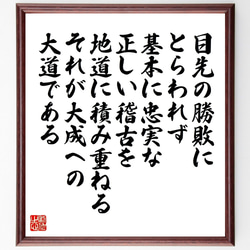 目先の勝敗に
とらわれず
基本に忠実な
正しい稽古を
地道に積み重ねる
それが大成への
大道である